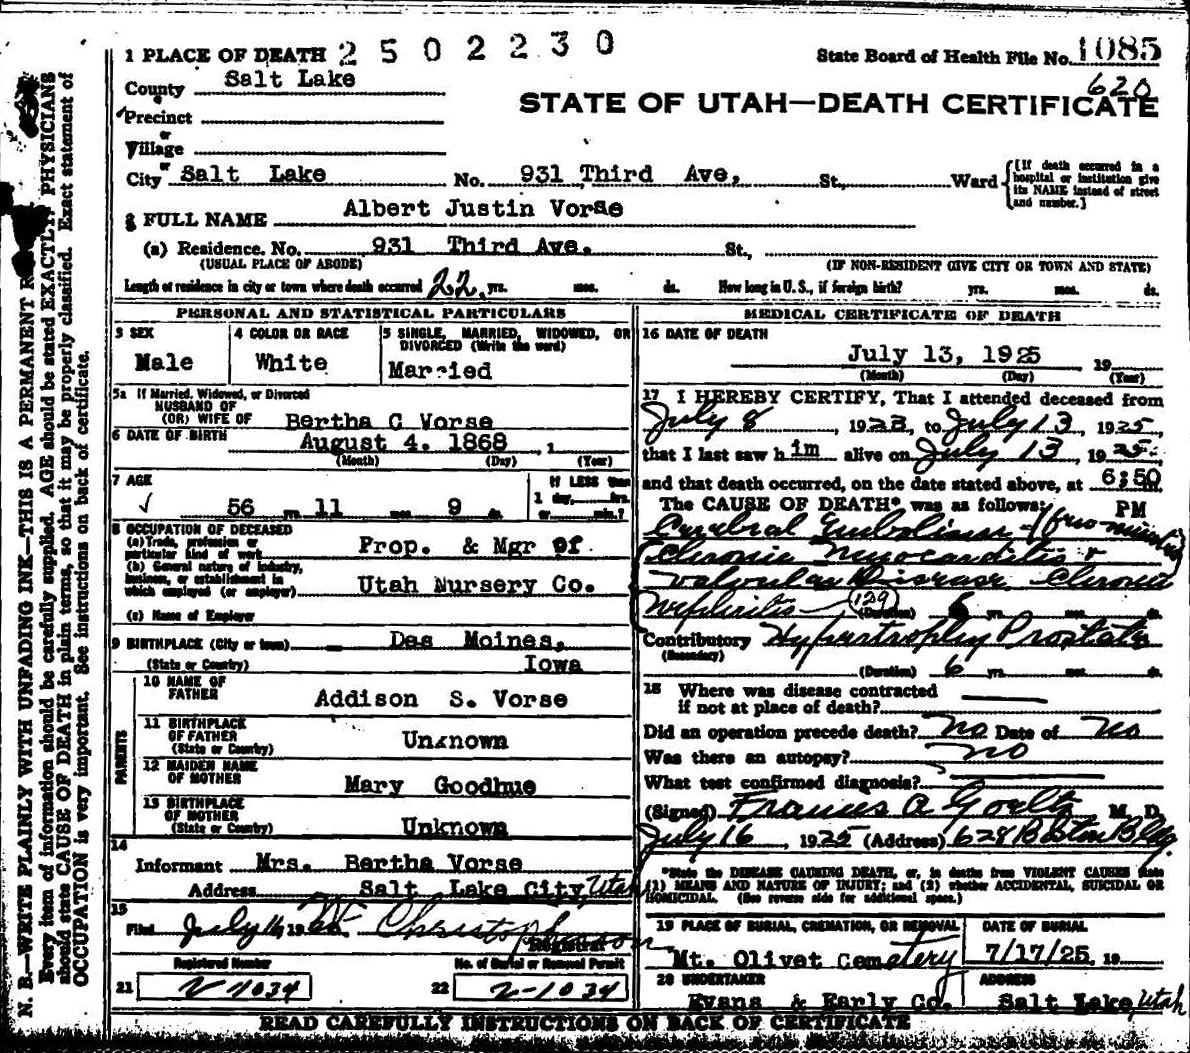 1 PLACE OF DEATH 2502230
State Board of Health File No. 1085
620
County Salt Lake
STATE OF UTAH—DEATH CERTIFICATE
Precinct
or
Village
or
City Salt Lake No. 931 Third Ave, St., Ward
[If death occurred in a hospital or institution give its NAME instead of street and number.]
2 FULL NAME Albert Justin Vorse
(a) Residence. No. 931 Third Ave. St.,
(USUAL PLACE OF ABODE) (IF NON-RESIDENT GIVE CITY OR TOWN AND STATE)
Length of residence in city or town where death occurred 22 yrs. mos. ds. How long in U. S., if foreign birth? yrs. mos. ds.
PERSONAL AND STATISTICAL PARTICULARS
3 SEX
Male
4 COLOR OR RACE
White
5 SINGLE, MARRIED, WIDOWED, OR
DIVORCED (Write the word)
Married
5a If Married, Widowed, or Divorced
HUSBAND OF
(OR) WIFE OF Bertha C Vorse
6 DATE OF BIRTH August 4. 1868, 1
(Month) (Day) (Year)
7 AGE
56 yrs. 11 mos. 9 ds.
If LESS than
1 day, hrs.
or min.?
8 OCCUPATION OF DECEASED
(a) Trade, profession or
particular kind of work Prop. & Mgr of
(b) General nature of industry,
business, or establishment in
which employed (or employer) Utah Nursery Co.
(c) Name of Employer
9 BIRTHPLACE (City or town) Des Moines,
(State or Country) Iowa
PARENTS
10 NAME OF
FATHER Addison S. Vorse
11 BIRTHPLACE
OF FATHER
(State or Country) Unknown
12 MAIDEN NAME
OF MOTHER Mary Goodhue
13 BIRTHPLACE
OF MOTHER
(State or Country) Unknown
14
Informant Mrs. Bertha Vorse
Address Salt Lake City, Utah
15
Filed July 16, 1925
Registrar
Registered Number No. of Burial or Removal Permit
21 V-1034 22 V-1034
MEDICAL CERTIFICATE OF DEATH
16 DATE OF DEATH
July 13, 1925 19
(Month) (Day) (Year)
17 I HEREBY CERTIFY, That I attended deceased from
July 8, 1923, to July 13, 1925,
that I last saw him alive on July 13, 1925.
and that death occurred, on the date stated above, at 6:50 m.
The CAUSE OF DEATH* was as follows: PM
Cerebral Embolism
Chronic Myocarditis &
Valvular Disease Chronic
Nephritis 129 (Duration) 6 yrs. mos. ds.
Contributory Hypertrophy Prostate
(Secondary)
(Duration) 6 yrs. mos. ds.
18 Where was disease contracted
if not at place of death?
Did an operation precede death? no Date of no
Was there an autopsy? no
What test confirmed diagnosis?
(Signed) Francis A Goeltz M. D.
July 16, 1925 (Address) 628 Boston Bldg.
*State the DISEASE CAUSING DEATH, or, in deaths from VIOLENT CAUSES state
(1) MEANS AND NATURE OF INJURY; and (2) whether ACCIDENTAL, SUICIDAL OR
HOMICIDAL. (See reverse side for additional space.)
19 PLACE OF BURIAL, CREMATION, OR REMOVAL
Mt. Olivet Cemetery
DATE OF BURIAL
7/17/25, 19
20 UNDERTAKER
Evans & Early Co.
ADDRESS
Salt Lake, Utah
READ CAREFULLY INSTRUCTIONS ON BACK OF CERTIFICATE
N. B.—WRITE PLAINLY WITH UNFADING INK—THIS IS A PERMANENT
Every item of information should be carefully supplied. AGE should be stated EXACTLY. PHYSICIANS
should state CAUSE OF DEATH in plain terms, so that it may be properly classified. Exact statement of
OCCUPATION is very important. See instructions on back of certificate.